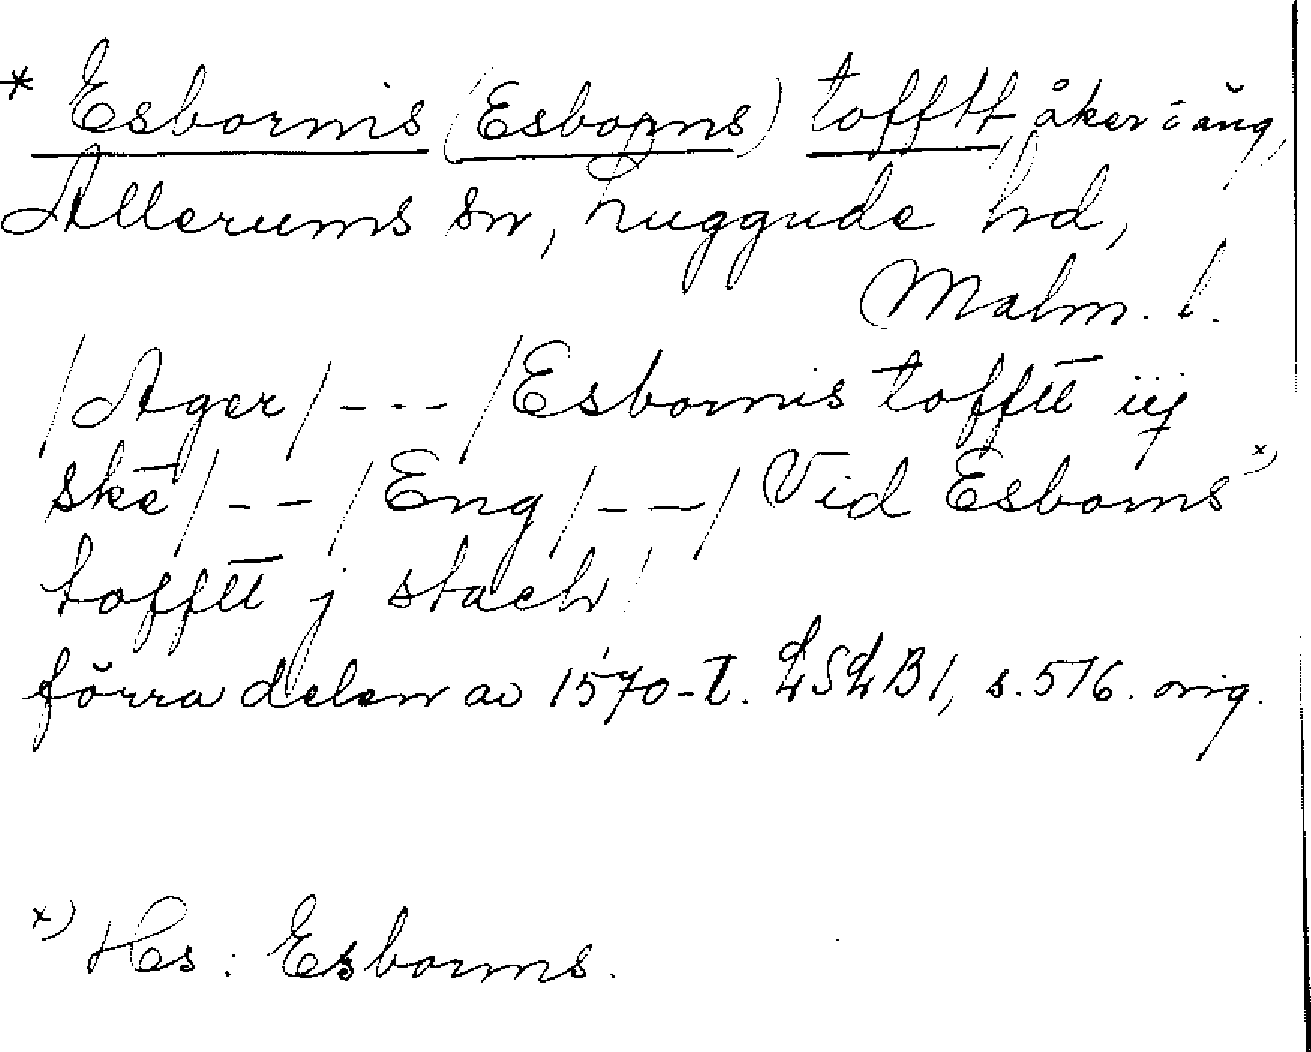 * Esbornis (Esborns) tofftt, åker o äng,
Allerums sn, Luggude hd,
Malm. l.
/Ager/ --- /Esbornis tofftt iij
ske/ -- /Eng/ -- / Vid Esborns x)
tofftt j stach/
förra delen av 1570-t. LSLB1, s. 576. orig.
x) Hs: Esborms.